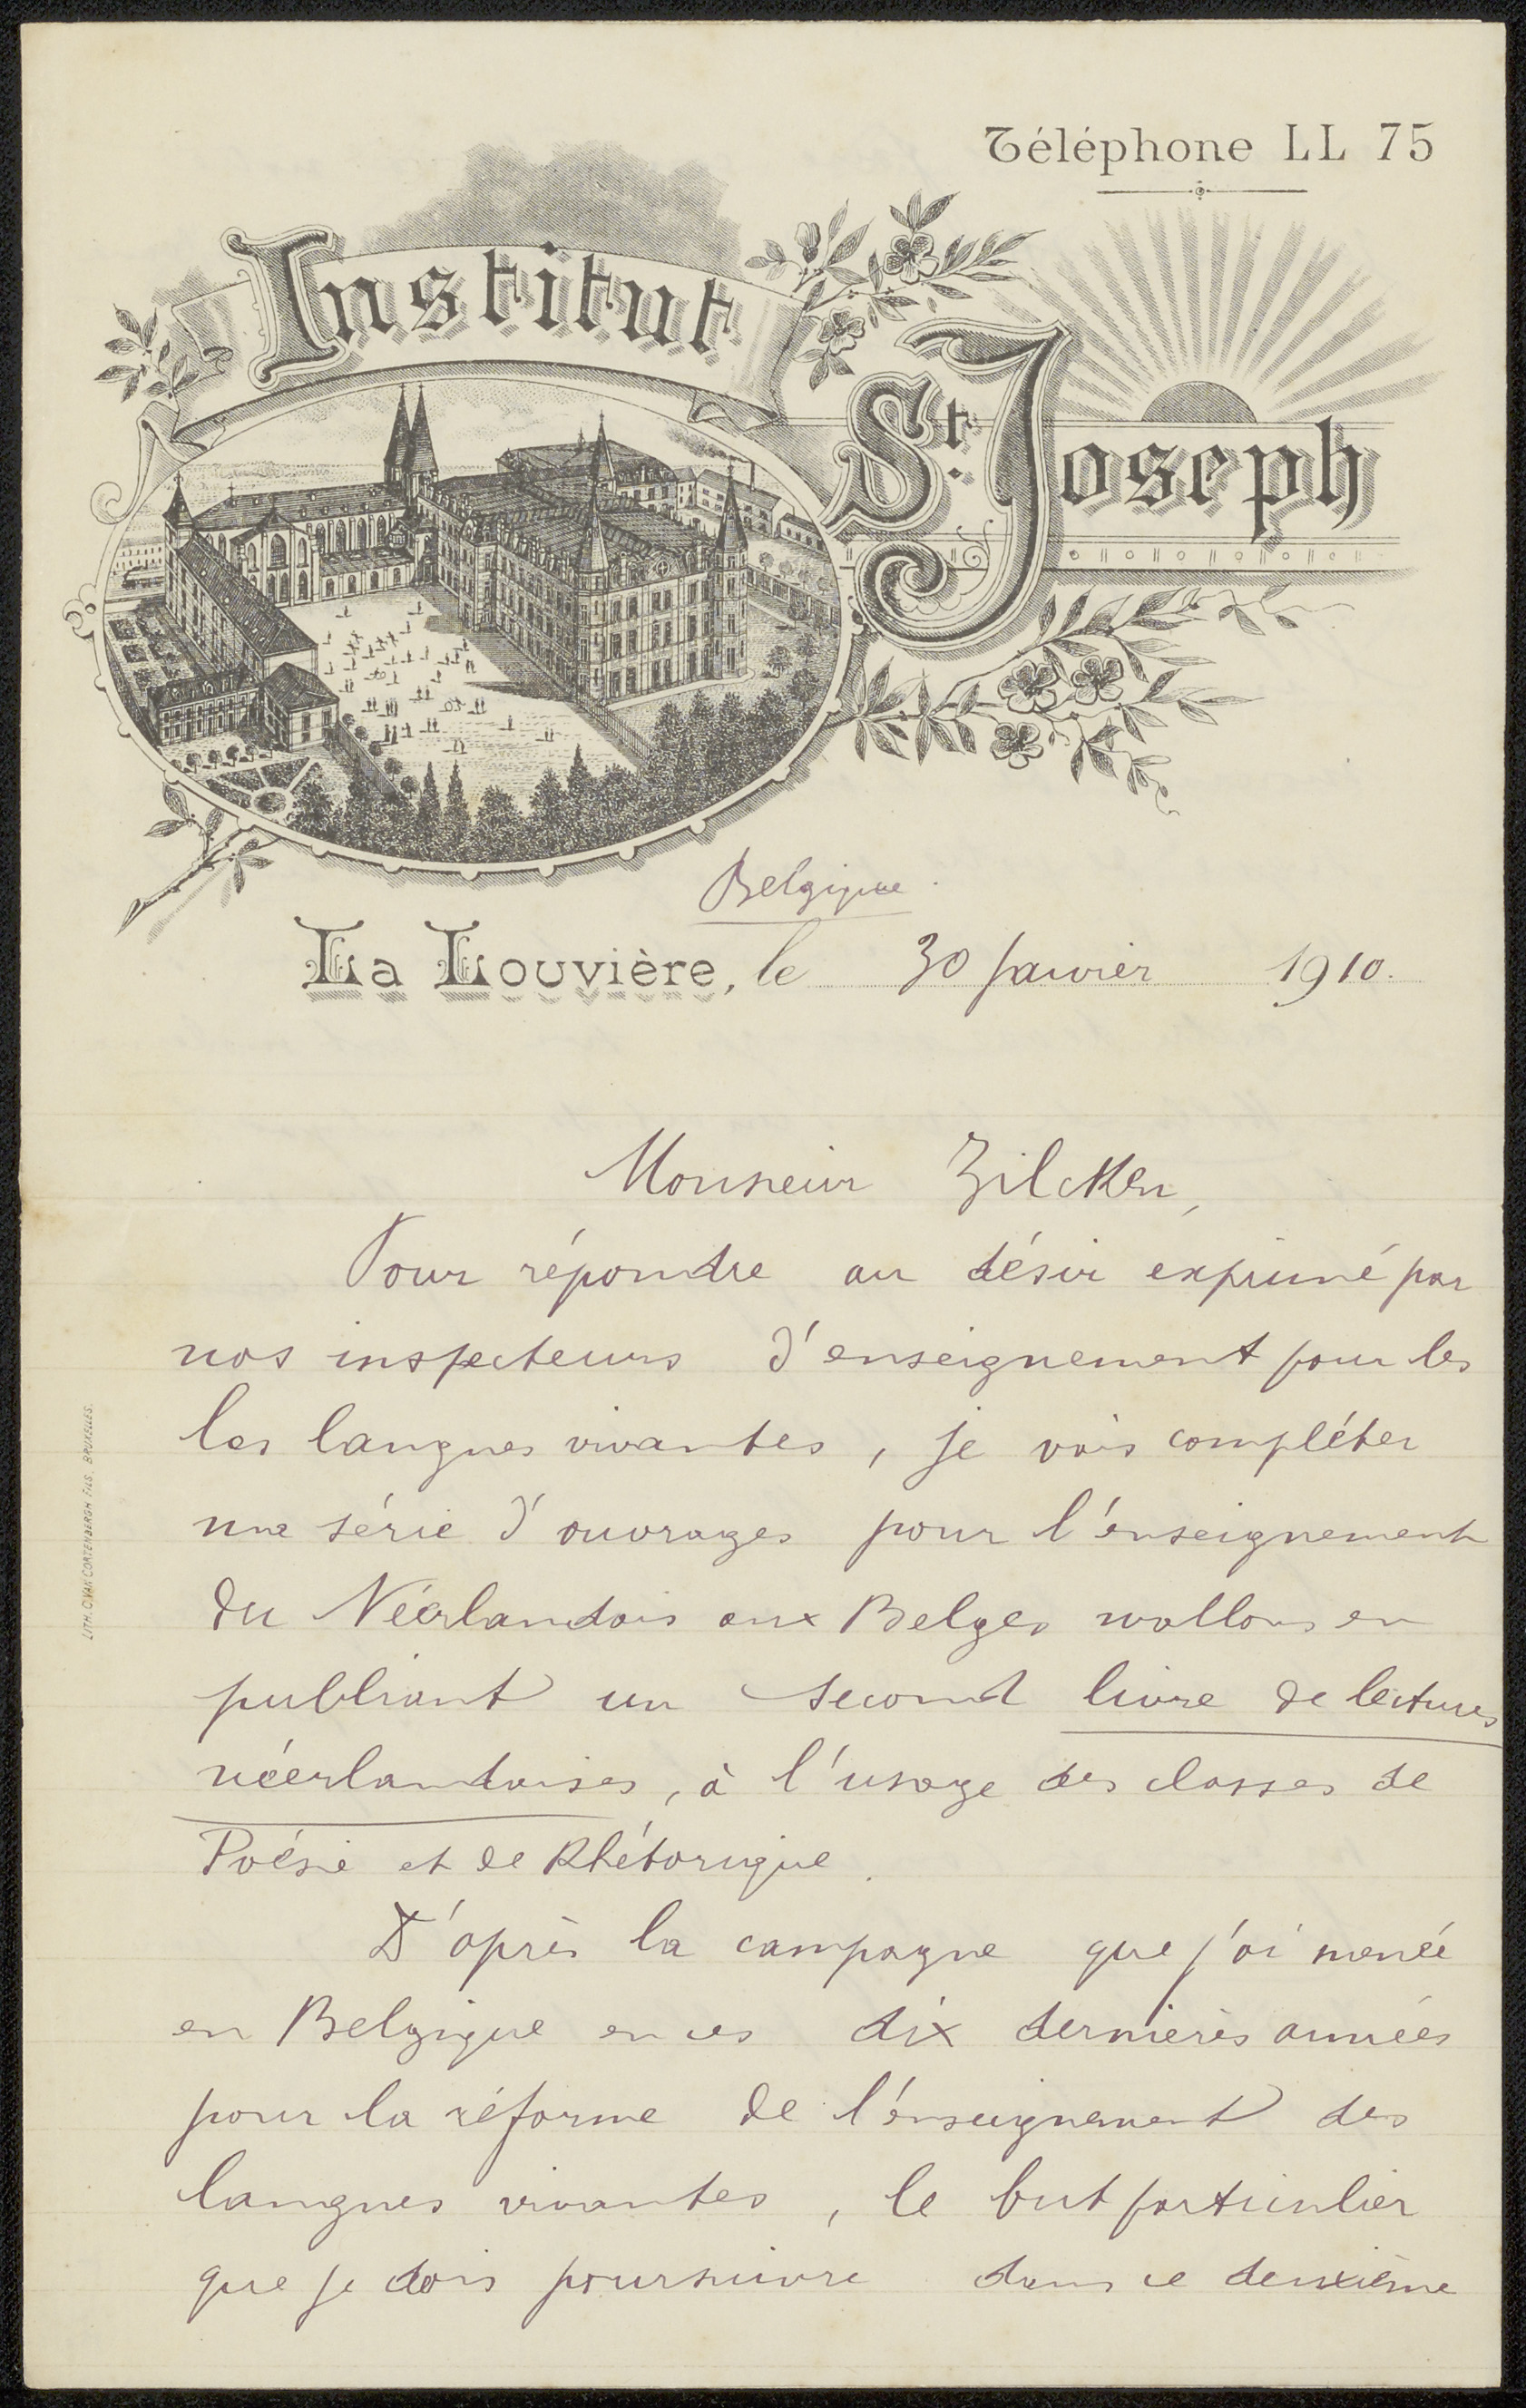 Téléphone LL 75
Institut
St. Joseph
Belgique.
La Louvière, le 30 Janvier 1910.
Monsieur Zilcken,
Pour répondre au désir exprimé par
nos inspecteurs d'enseignement pour les
les langues vivantes, je vais compléter
une série d'ouvrages pour l'enseignement
du Néerlandais aux Belges wallons en
publiant un second livre de lectures
néerlandaises, à l'usage des classes de
Poésie et de Rhétorique.
D'après la campagne que j'ai menée
en Belgique en ces dix dernières années
pour la réforme de l'enseignement des
langues vivantes, le but particulier
que je dois poursuivre dans ce deuxième
LITH. C. VAN CORTENBERGH FILS. BRUXELLES.